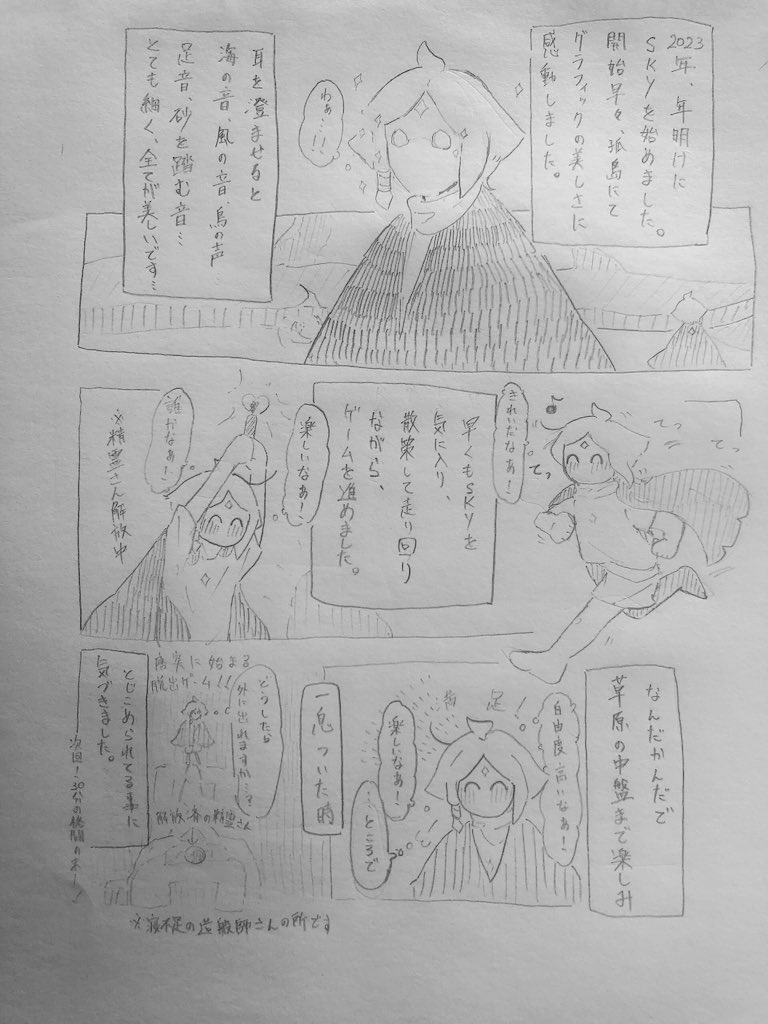 2023年、年明けに
SKYを始めました。
開始早々、孤島にて
グラフィックの美しさに
感動しました。
わぁ…!!
耳を澄ませると
海の音、風の音、鳥の声…
足音、砂を踏む音…
とても細く、全てが美しいです…
てっ
てっ
てっ
きれいだなぁ!
早くもSKYを
気に入り、
散策して走り回り
ながら、
ゲームを進めました。
楽しいなぁ!
誰かなぁ!
※精霊さん解放中
なんだかんだで
草原の中盤まで楽しみ
自由度高いなぁ!
満足!
楽しいなぁ!
…ところで
一息ついた時
どうしたら
外に出れますか…?
脱出ゲーム!!
解放済の精霊さん
とじこめられてる事に
気づきました。
次回!30分の格闘の末ー!
※寝不足の造船師さんの所です